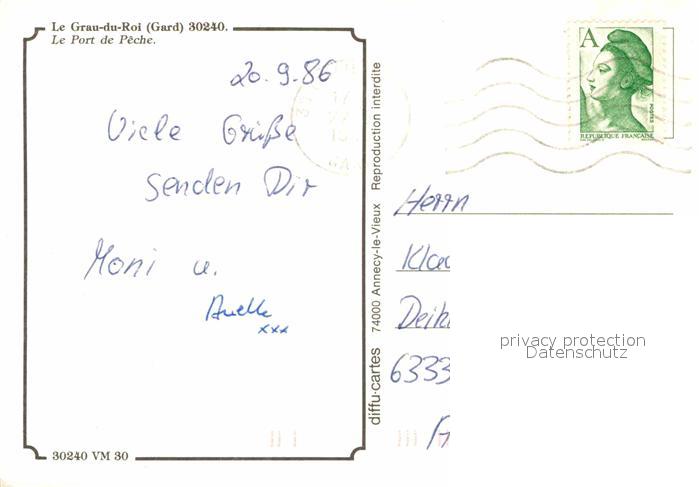 Le Grau-du-Roi (Gard) 30240.
Le Port de Pêche.
20.9.86
Viele Grüße
senden Dir
Moni u.
xxx
30240 VM 30
diffu-cartes 74000 Annecy-le-Vieux Reproduction interdite
A
POSTES
REPUBLIQUE FRANÇAISE
Herrn
Kla
Deik
6333
privacy protection
Datenschutz